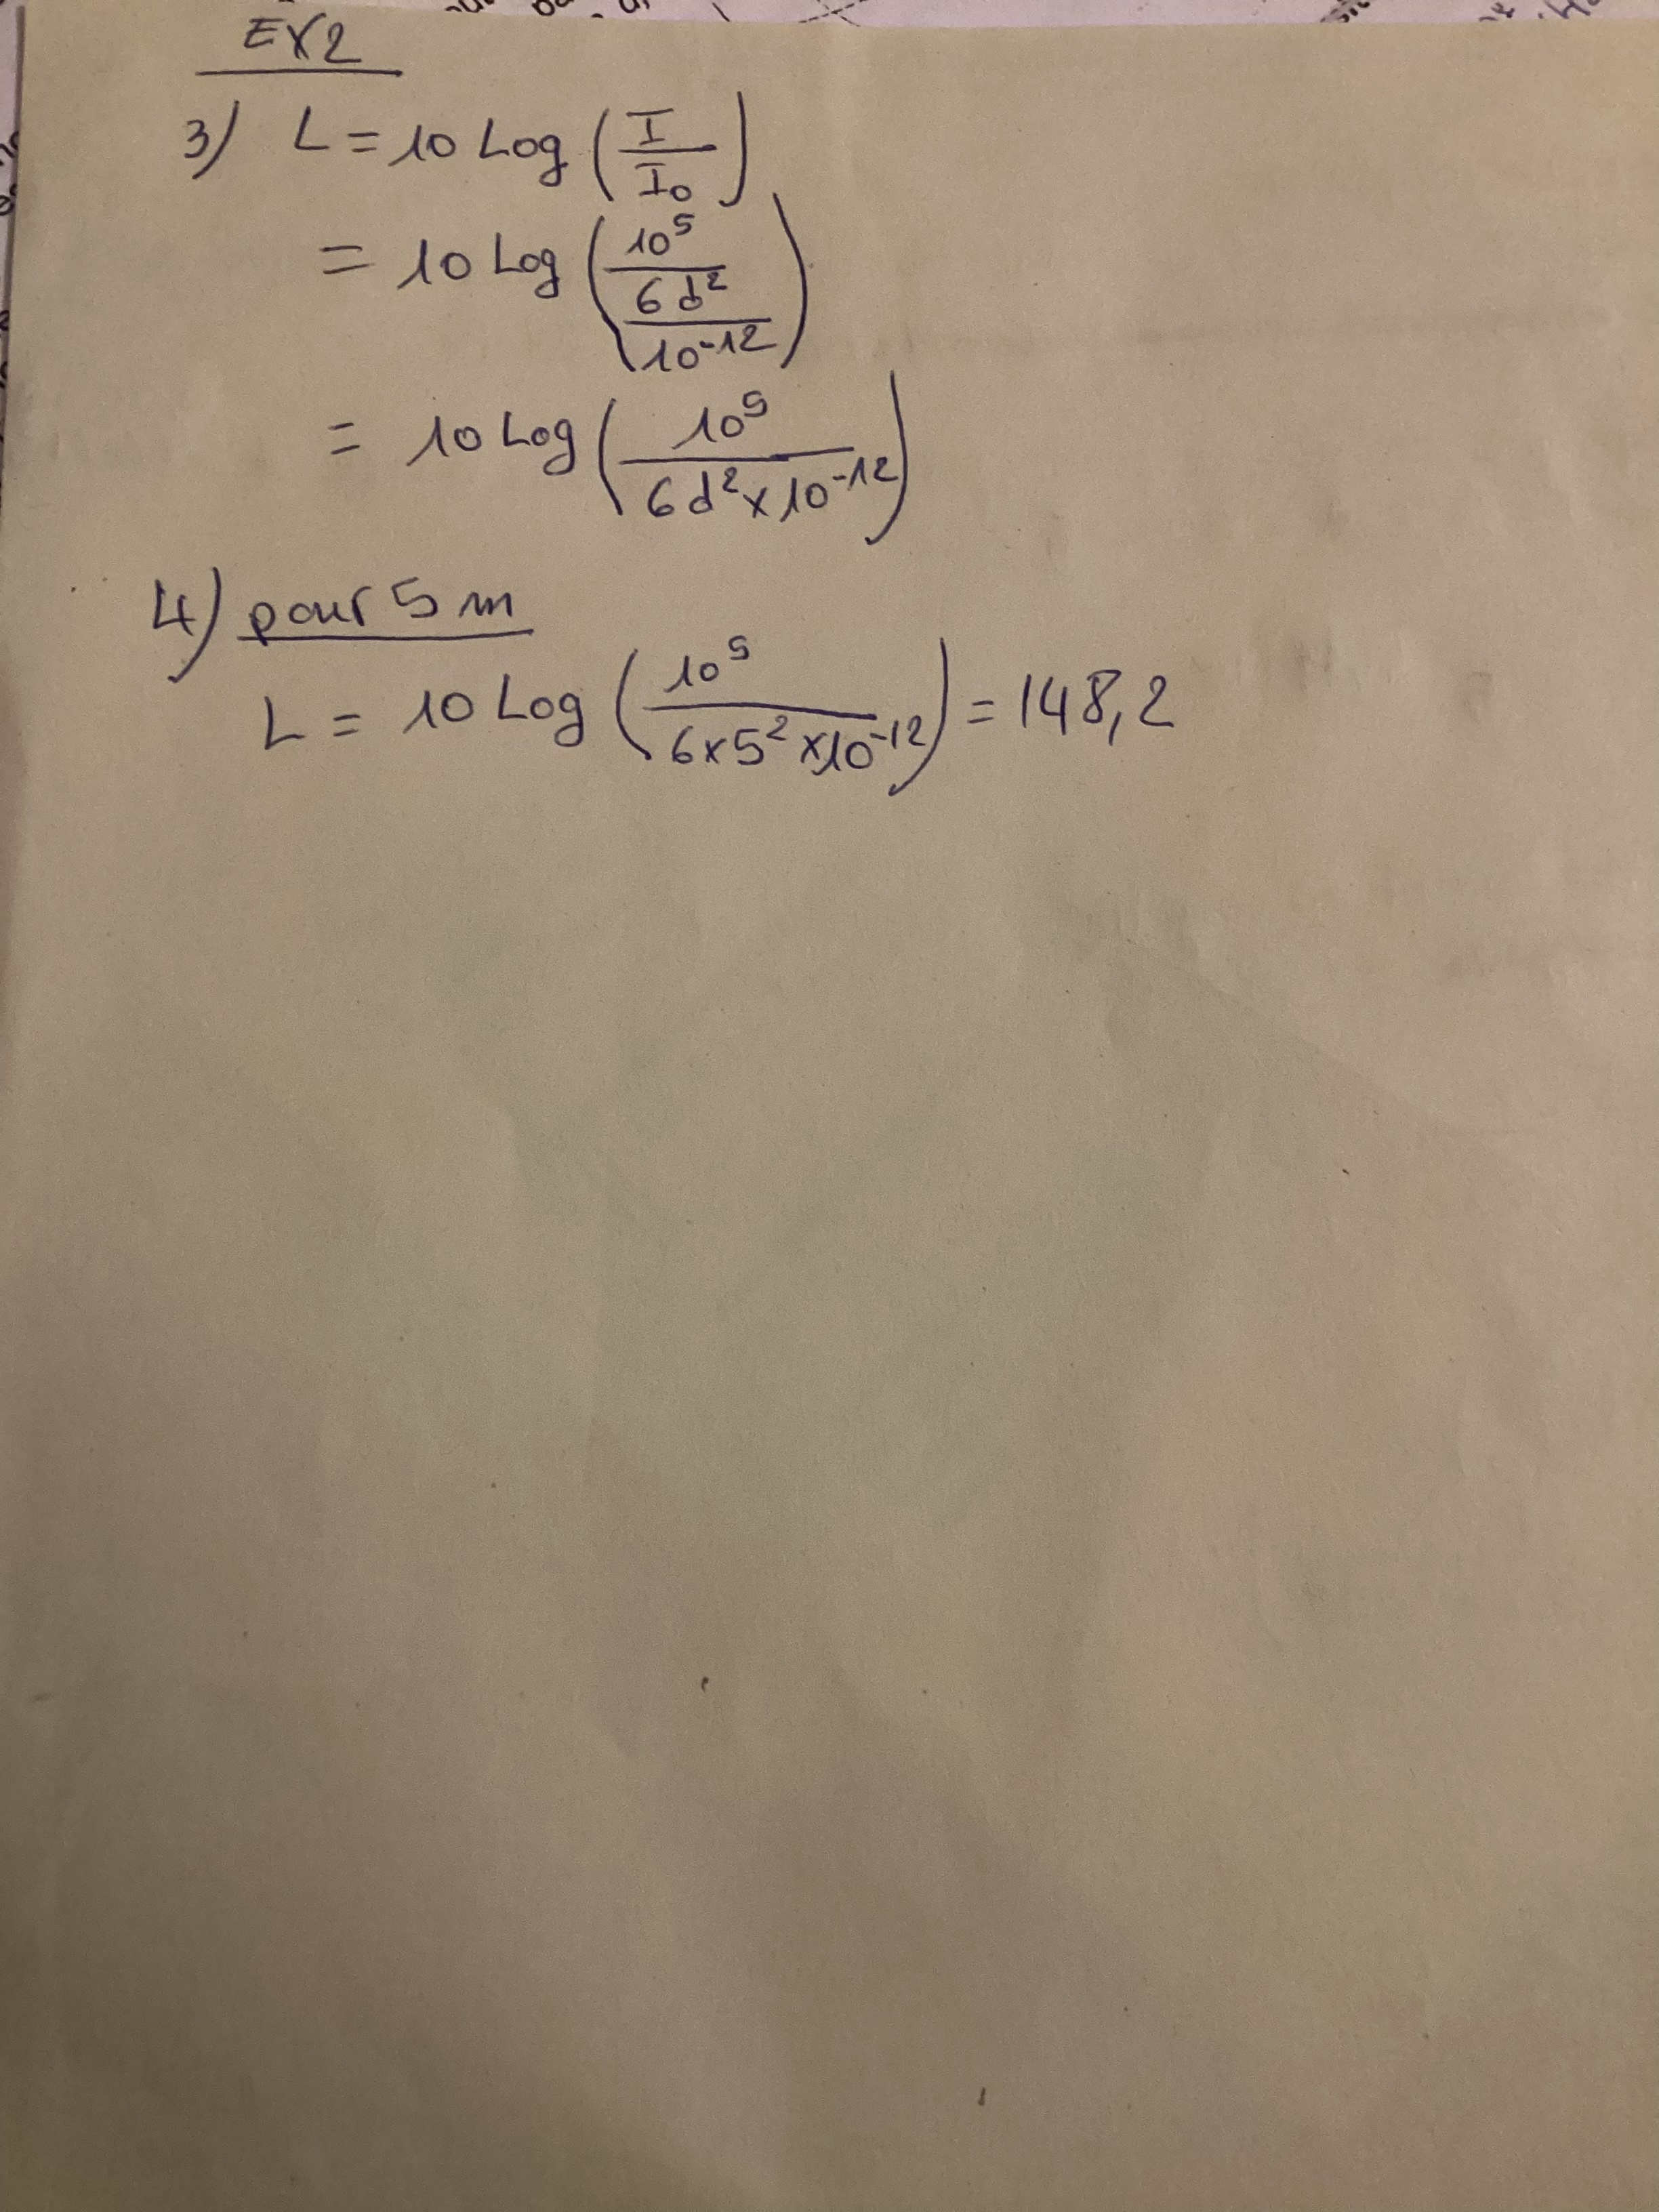 EX2
3) L = 10 Log (I / I₀)
= 10 Log (10⁵ / 6d² / 10⁻¹²)
= 10 Log (10⁵ / 6d² x 10⁻¹²)
4) pour 5 m
L = 10 Log (10⁵ / 6x5² x10⁻¹²) = 148,2